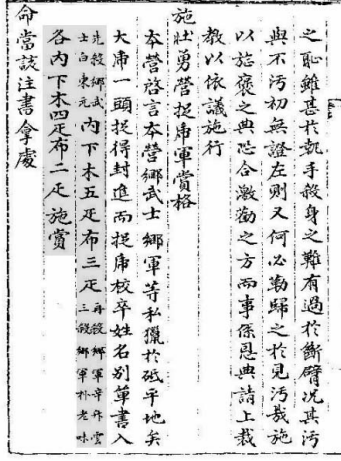 之恥雖甚於執手殺身之難有過於斷臂况其污
與不污初無證左則又何必勒歸之於見污哉施
以旌褒之典恐合激勸之方而事係恩典請上裁
教以依議施行
施壯勇營捉虎軍賞格
本營啓言本營鄉武士鄉軍等私獵於砥平地矣
大虎一頭捉得封進而捉虎校卒姓名別單書入
先殺鄉武士白東元內下木五疋布三疋再殺鄉軍辛丹雲三殺鄉軍朴老味
各內下木四疋布二疋施賞
命當該注書拿處